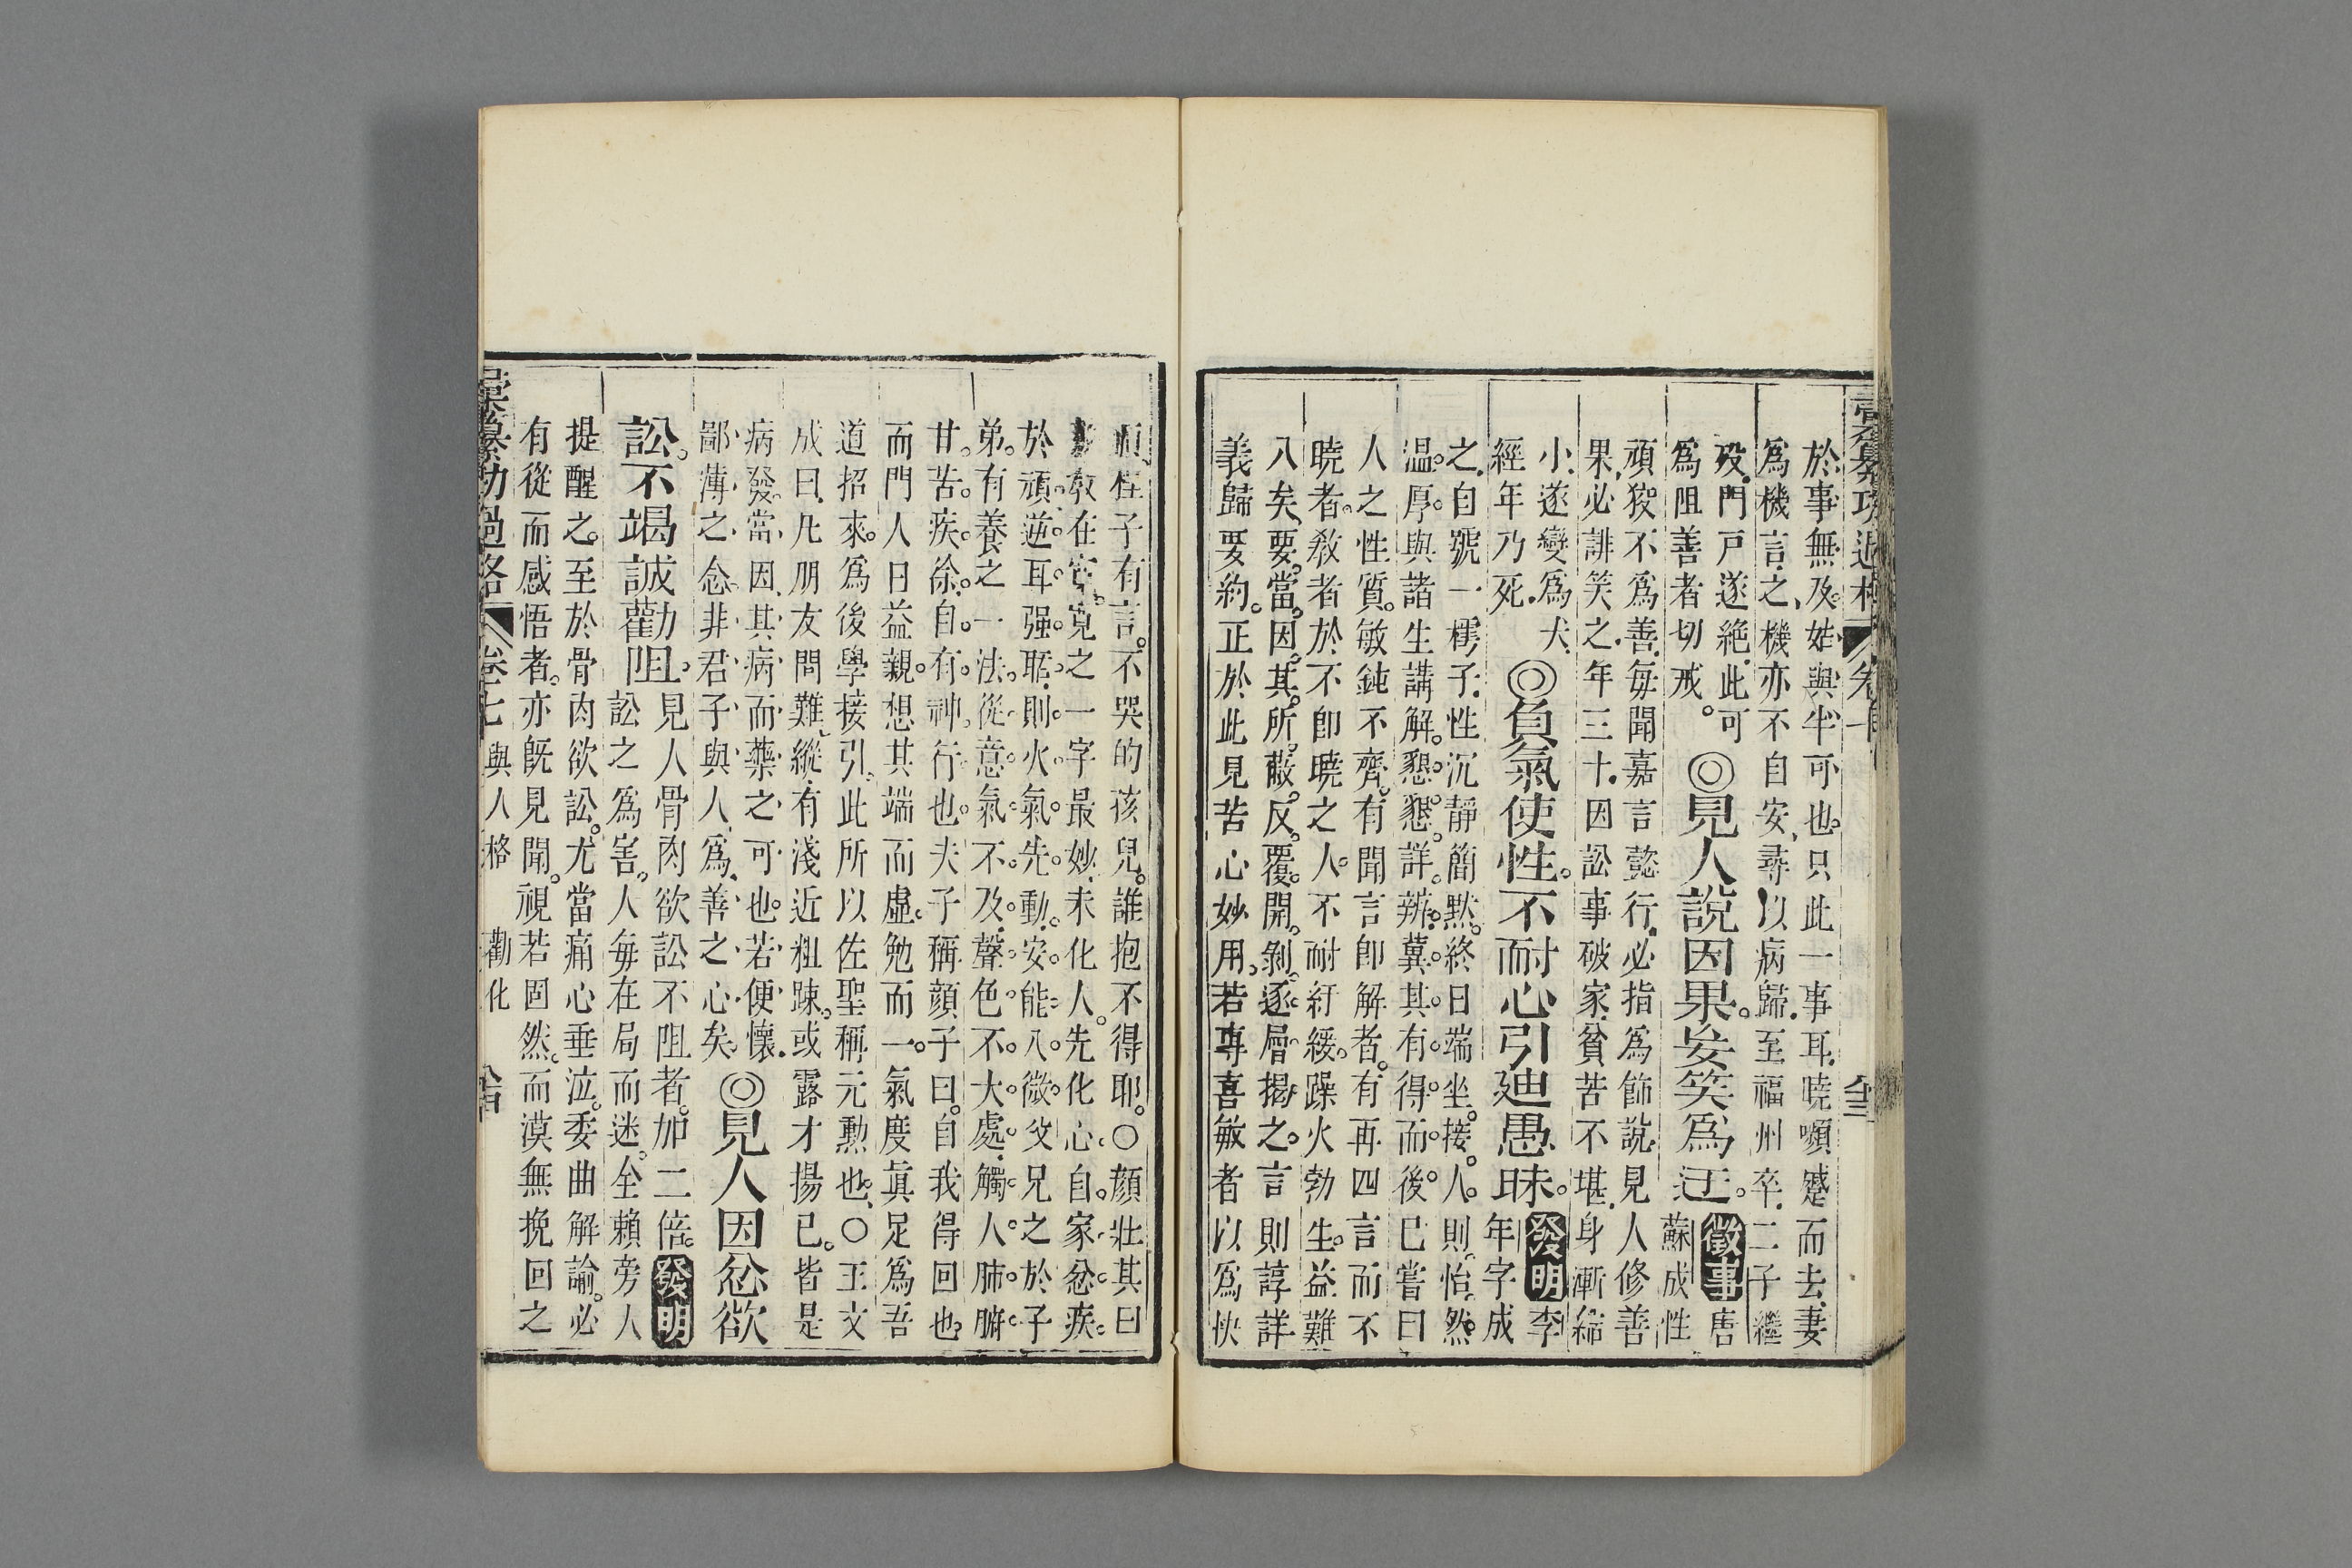 彙纂功過格 卷七
於事無及。姑與半可也。只此一事耳。曉嚬蹙而去。妻
爲機言之、機亦不自安、尋以病歸。至福州卒。二子繼
歿。門戸遂絶。此可
爲阻善者切戒。
◎見人說因果。妄笑爲迂。
徵事 唐
蘇成性
頑狡不爲善。每聞嘉言懿行。必指爲飾說。見人修善
果。必誹笑之。年三十。因訟事破家。貧苦不堪。身漸縮
小。遂變爲犬。
經年乃死。
◎負氣使性。不耐心引廸愚昧。
發明 李
年字成
之。自號一樗子。性沉靜簡默。終日端坐。接人。則怡然。
溫厚。與諸生講解。懇懇詳辨。冀其有得而後已。嘗曰
人之性質。敏鈍不齊。有聞言即解者。有再四言而不
曉者。教者於不即曉之人。不耐紆緩。躁火勃生。益難
入矣。要當因其所蔽。反覆開剝。逐層揭之。言則諄詳
義歸要約。正於此見苦心妙用。若專喜敏者以爲快
程子有言。不哭的孩兒。誰抱不得耶。○顏壯其曰
敷教在寬。寬之一字最妙。未化人。先化心。自家忿疾
於頑。逆耳强聒。則火氣先動。安能入微。父兄之於子
弟。有養之一法。從意氣不及。聲色不大處。觸人肺腑。
甘苦疾徐。自有神行也。夫子稱顔子曰。自我得回也。
而門人日益親。想其端而虛。勉而一。氣度眞足爲吾
道招來。爲後學接引。此所以佐聖稱元勳也。○王文
成曰。凡朋友問難。縱有淺近粗踈。或露才揚已。皆是
病發。當因其病而藥之可也。若便懷
鄙薄之念。非君子與人爲善之心矣。
◎見人因忿欲
訟。不竭誠勸阻。
見人骨肉欲訟不阻者。加二倍。發明
訟之爲害。人每在局而迷。全賴旁人
提醒之。至於骨肉欲訟。尤當痛心垂泣。委曲解諭。必
有從而感悟者。亦旣見聞。視若固然。而漠無挽回之
彙纂功過格 卷七 與人格 勸化